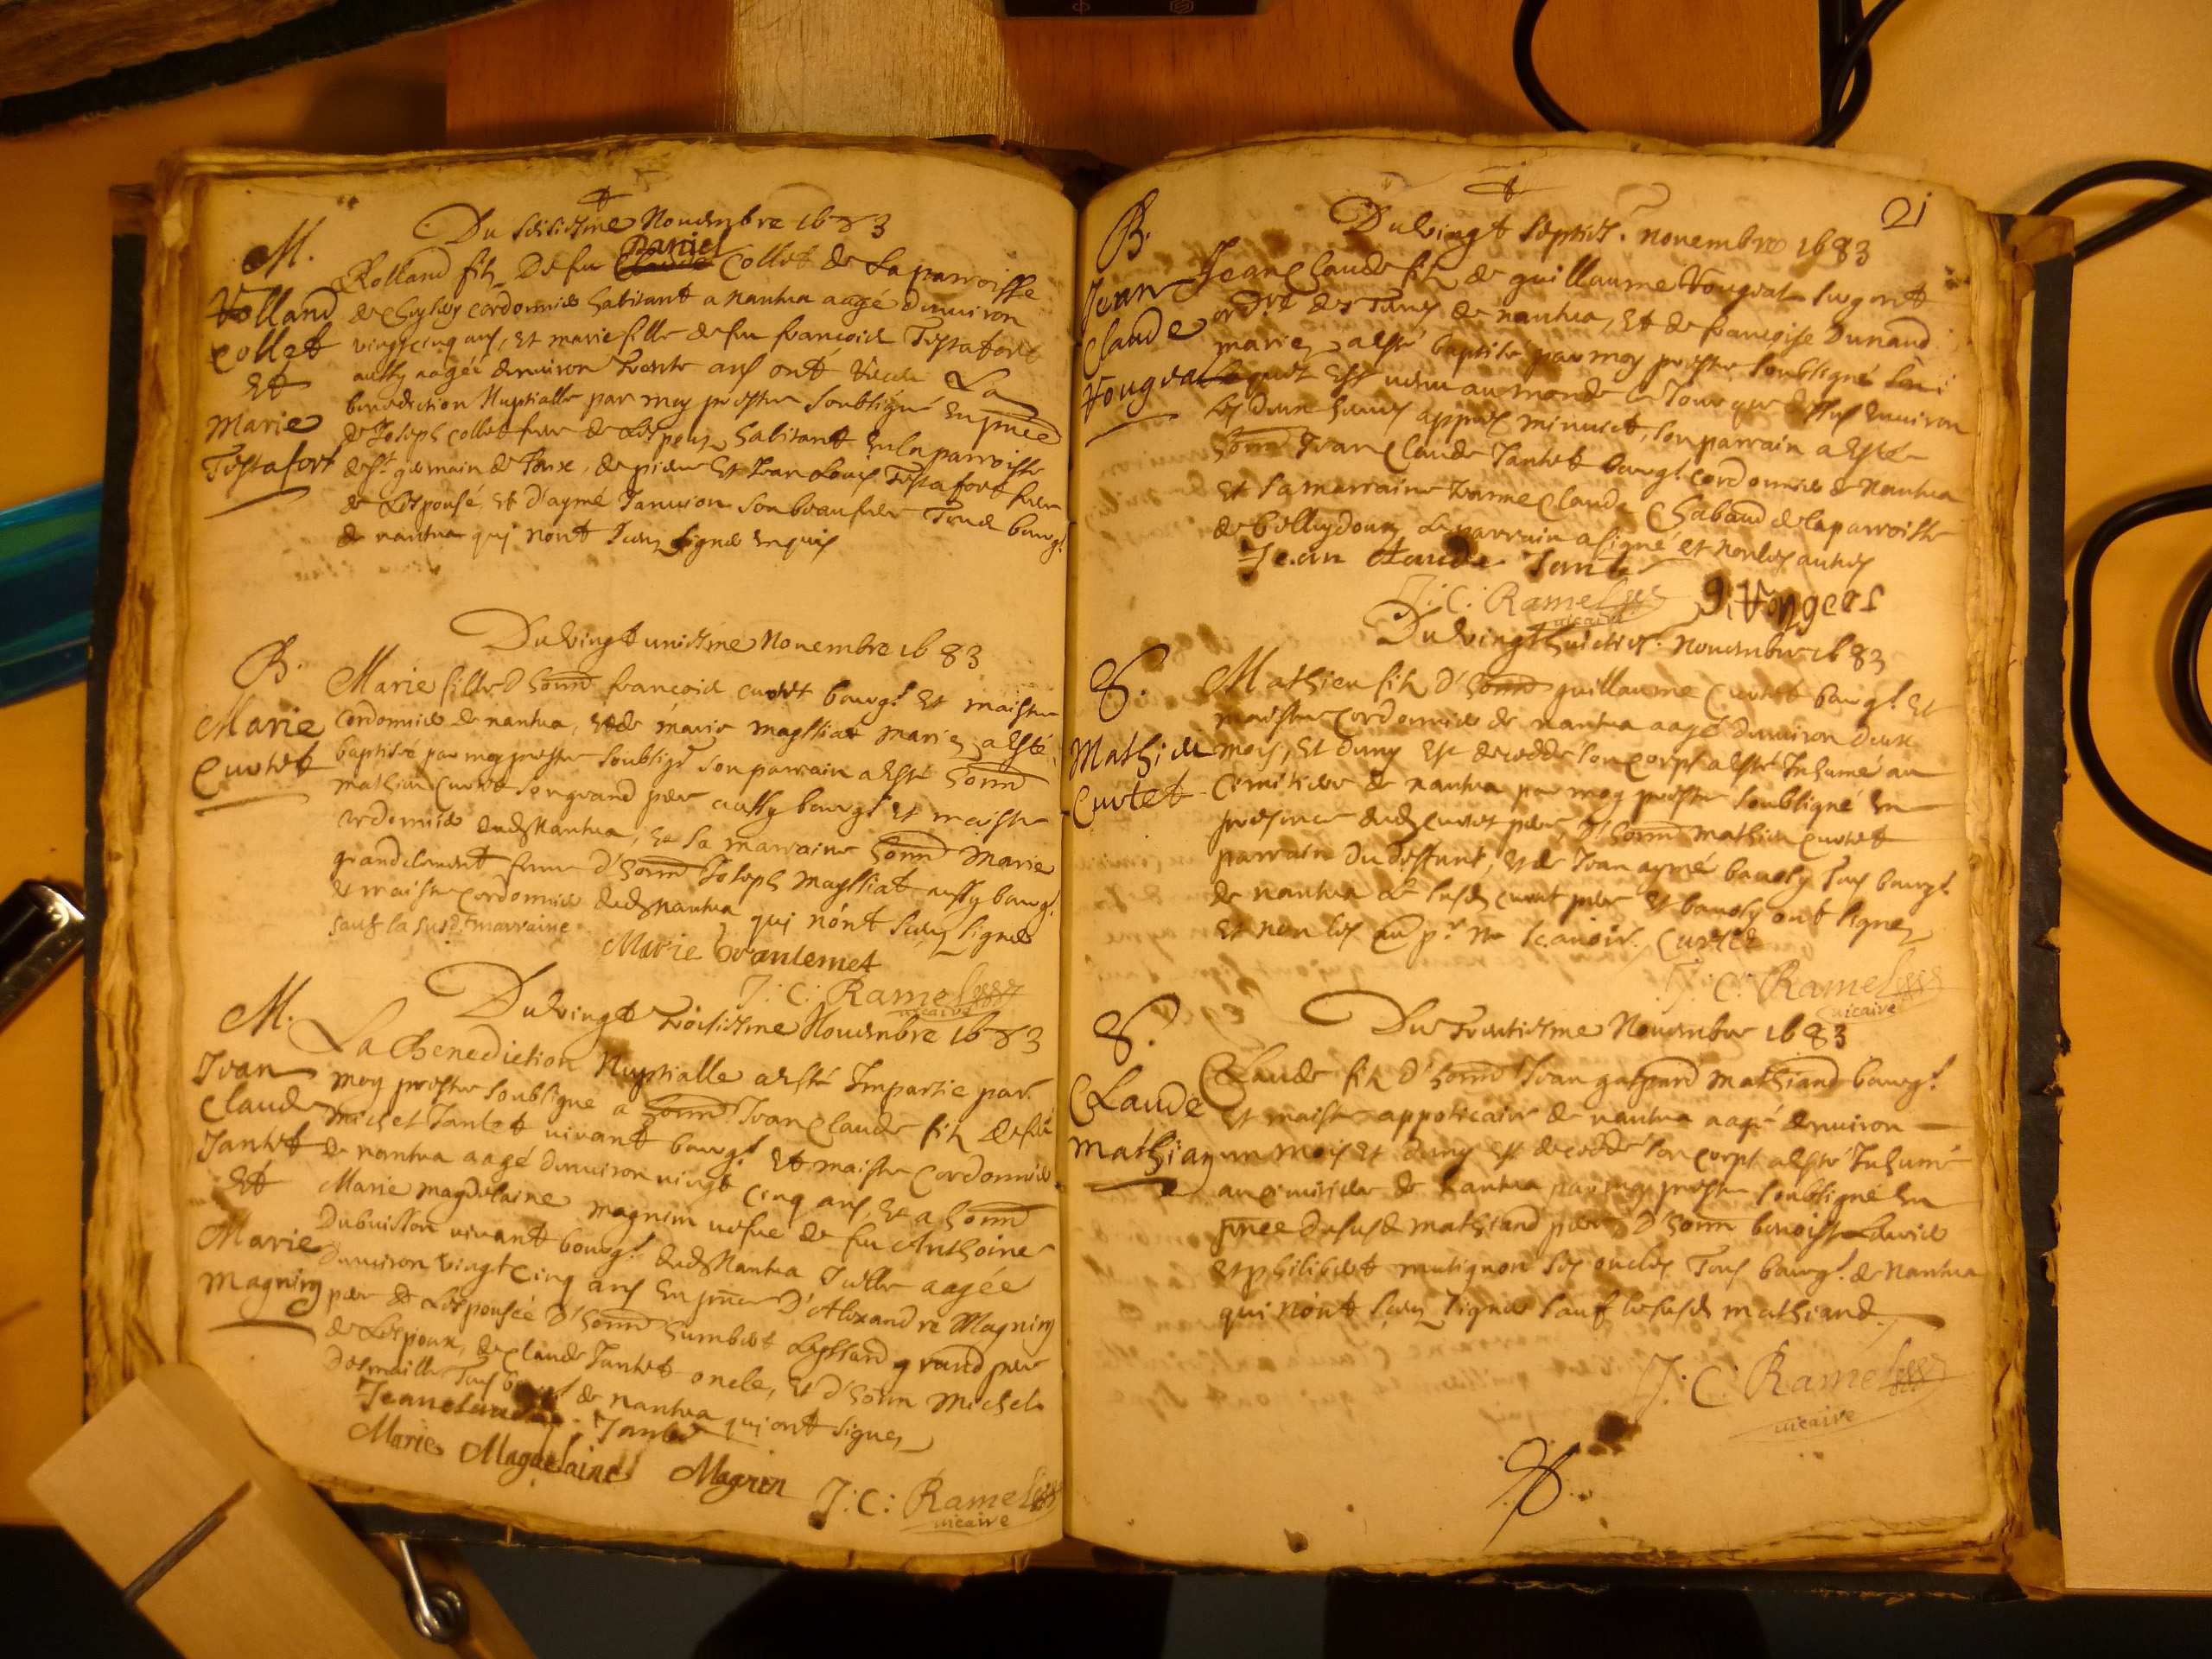 Du seiziesme Novembre 1683
M.
Rolland
Collet
Et
Marie
Testafort
Rolland filz De feu Claude Daniel Collet de La parroisse
de cordonnier habitant a Nantua aagé denviron
vingt cinq ans, et marie fille de feu francois Testafort
aussy aagée denviron trente ans ont receu La
benediction Nuptialle par moy prestre soubsigné en pnce
de Joseph collet frere de Lespoux habitant en la parroisse
de St germain de Joux, de et Jean Louis Testafort frere
de Lespousé, et d'aymé Janvion son beau frere Tous bourgs
de nantua qui nont sceu signer enquis
Du vingt uniesme Novembre 1683
B.
Marie
Curtet
Marie fille d'honn francois curtet bourgs et maistre
cordonnier de nantua, et de marie maissiat mariez a esté
baptisée par moy prestre soubsigé son parrain a esté honn
mathieu Curtet son grand pere aussy bourgs et maistre
cordonnier dud Nantua, et sa marraine honn Marie
grandclement femme d'honn Joseph maissiat aussy bourg
et maistre cordonnier dud Nantua qui nont sceu signer
sauf la susd marraine
Marie Granlemet
J: C: Ramel
vicaire
Du vingt Troisiesme Novembre 1683
M.
Jean
Claude
Jantet
Et
Marie
Magnin
La Benediction Nuptialle a esté Impartie par
moy prestre soubsigne a honn Jean Claude filz de feu
michel Jantet vivant bourgs et maistre Cordonnier
de nantua aagé denviron vingt cinq ans, et a honn
Marie magdelaine magnin vefve de feu Anthoine
Dubuisson vivant bourgs dud Nantua Icelle aagée
denviron vingt cinq ans En pnce D'Alexandre Magnin
pere de Lespousée d'honn humbert grand pere
de Lespoux, de Claude Jantet oncle, et d'honn Michel
Tous bourgs de nantua qui ont signez
Jeanclaude Jantet
Marie Magdelaine Magnin
J: C: Ramel
vicaire
21
Du vingt septies. novembre 1683
B.
Jean
Claude
Vougeat
Jean Claude filz de guillaume Vougeat sergent
de nantua, et de francoise Dunand
mariez, a esté baptisé par moy prestre soubsigné
lequel est venu au monde le Jour que dessus environ
les deux heures appres minuict, son parrain a esté
honn Jean Claude Jantet bourgs cordonnier de Nantua
et sa marraine Jeanne Claude Chabaud de la parroisse
de Bellydoux Le parrain a signé et non les autres
Jean Claude Jantet
J: C: Ramel
vicaire
Du vingt huicties. Novembre 1683
S.
Mathieu
Curtet
Mathieu filz d'honn guillaume Curtet bourgs et
maistre cordonnier de nantua aagé denviron deux
mois, et demy est decedde son corps a esté Inhumé au
cimitiere de nantua par moy prestre soubsigné en
presence dud curtet pere, d'honn mathieu curtet
parrain du deffunt, et de Jean aymé baudy Tous bourgs
de nantua Le susd curtet pere et baudy ont signez
et non les pr ne scavoir. Curtet
J: C: Ramel
vicaire
Du Trentiesme Novembre 1683
S.
Claude
Mathiand
Claude filz d'honn Jean gaspard mathiand bourgs
et maistre appoticaire de nantua aagé denviron
un mois et demy est decedde son corps a esté Inhumé
au cimitiere de Nantua par moy prestre soubsigné en
pnce du susd mathiand pere d'honn benoist
et philibert mutignon ses oncles Tous bourgs de Nantua
qui nont sceu signer sauf le susd mathiand.
J: C: Ramel
vicaire